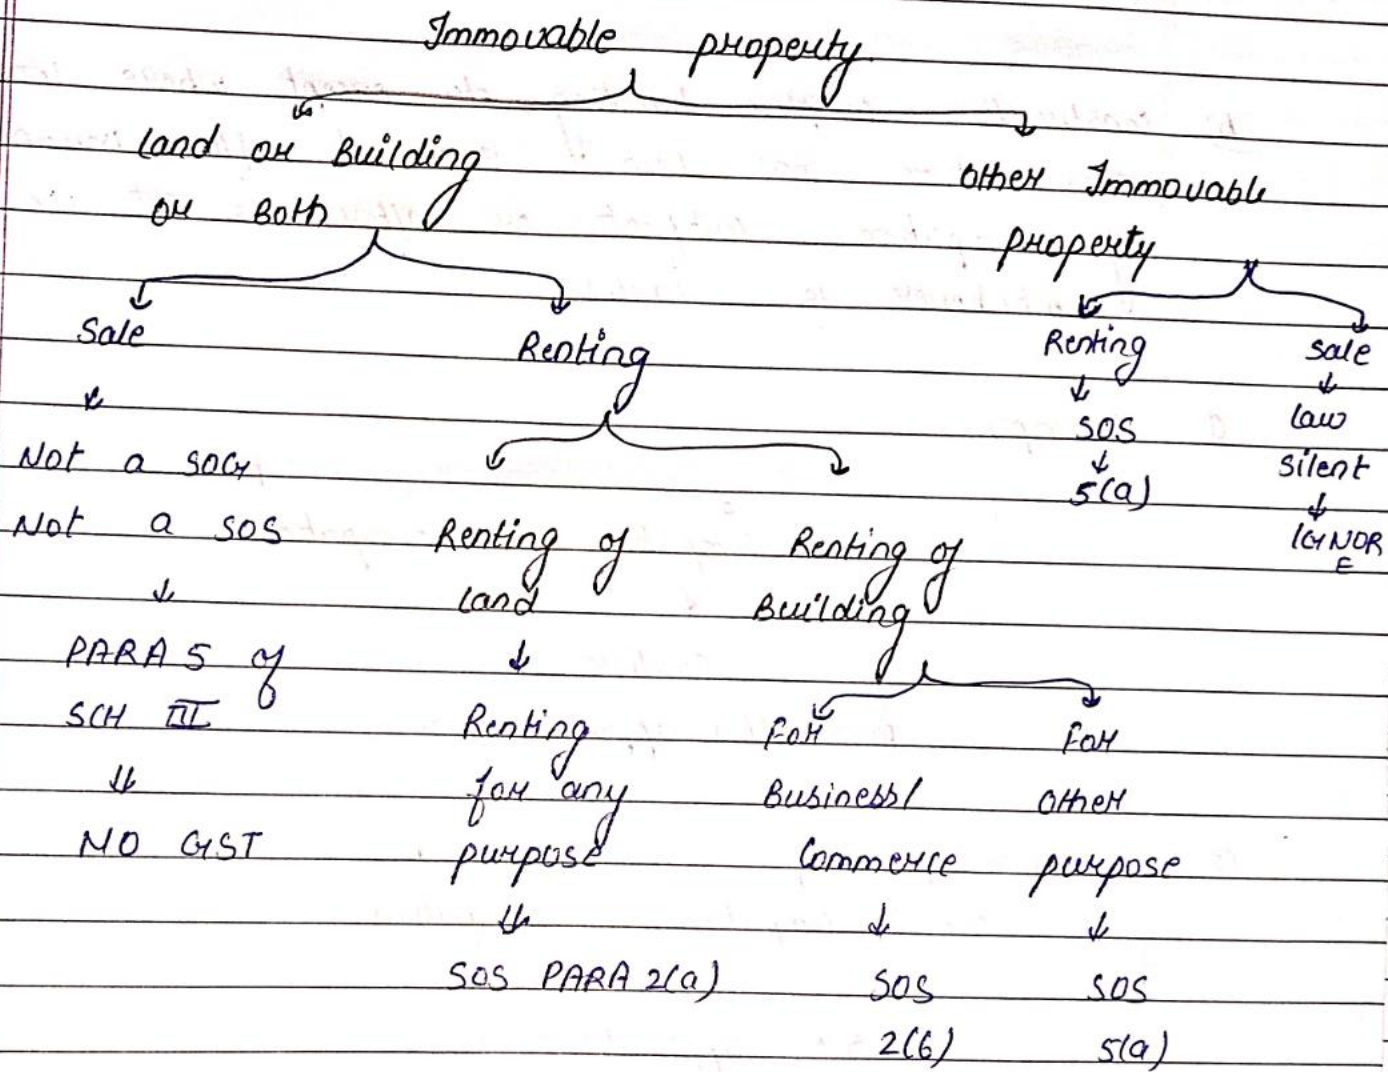 Immovable property
Land or Building
or Both
Other Immovable
property
Sale
Renting
Renting
Sale
Not a SOG
Not a SOS
PARA 5 of
SCH III
NO GST
Renting of
Land
Renting
for any
purpose
SOS PARA 2(a)
Renting of
Building
For
Business/
Commerce
SOS
2(b)
For
other
purpose
SOS
5(a)
SOS
5(a)
Law
Silent
IGNOR
E